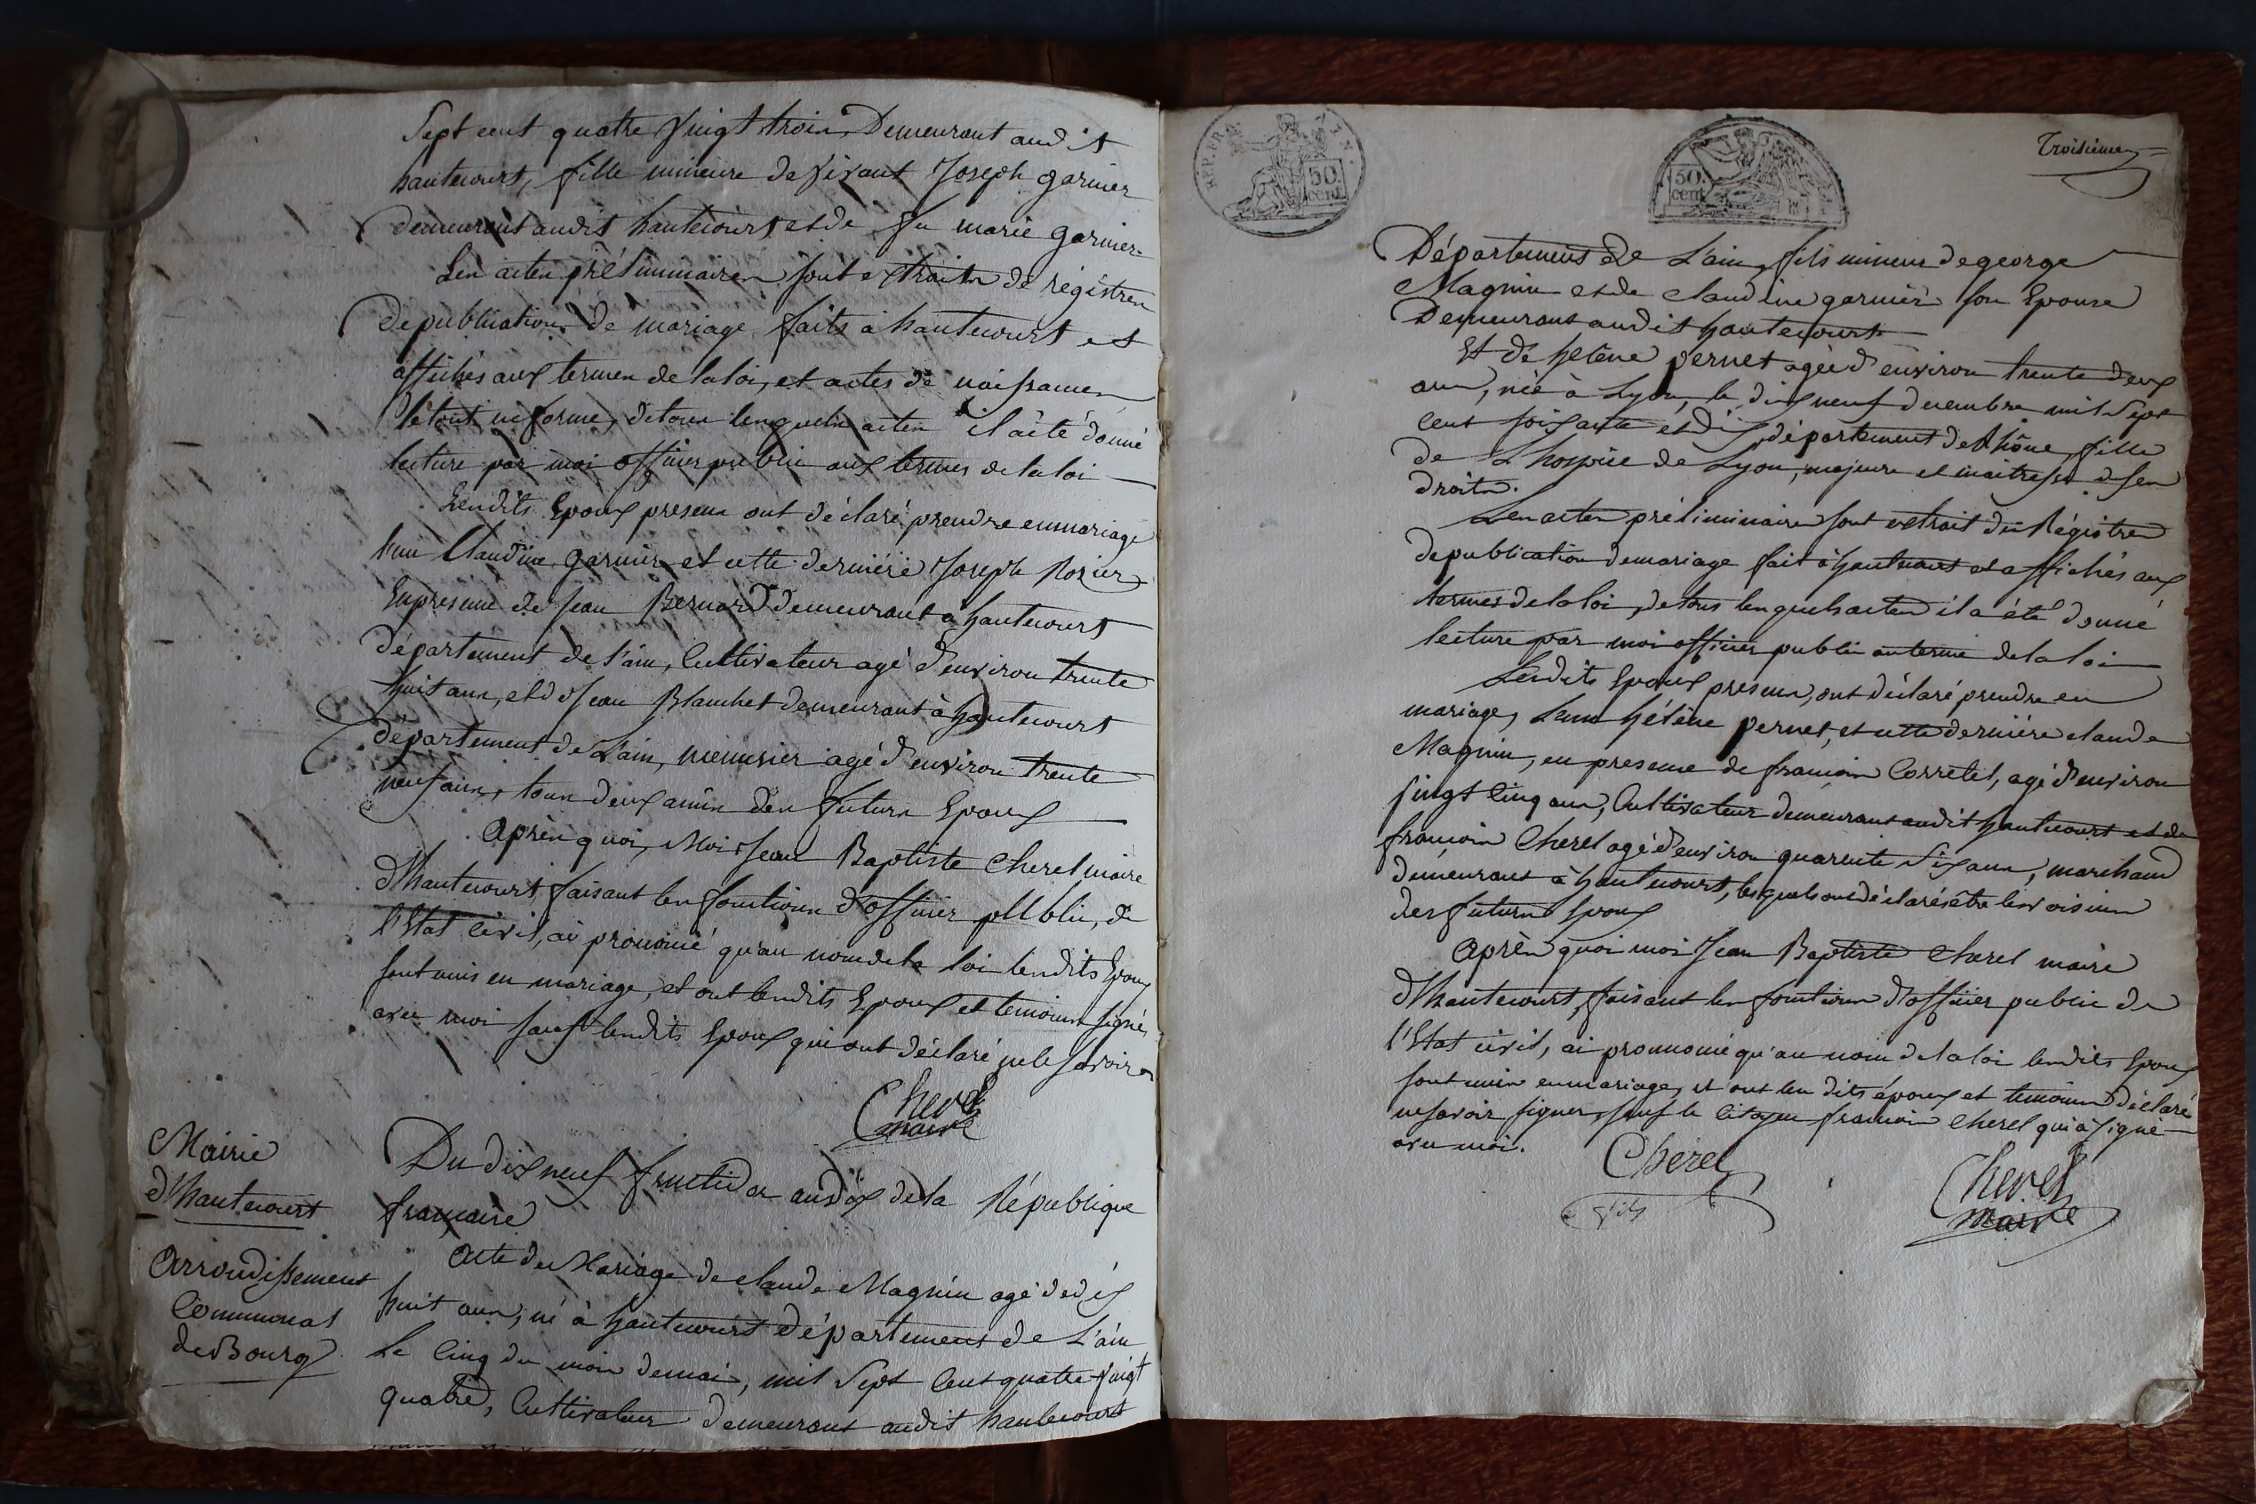 Sept cent quatre vingt trois, Demeurant audit
hautecourt, fille mineure de vivant Joseph garnier
demeurant audit hautecourt et de fu marie garnier
Les actes préliminaires sont extraits de régistres
de publications de mariage faits à hautecourt et
affichés aux termes de la loi, et actes de naissances
le tout en forme, de tous lesquels actes il a été donné
lecture par moi officier public aux termes de la loi
Lesdits Epoux presens ont déclaré prendre en mariage
l'un Claudine garnier et cette dernière Joseph Rozier
En présence de Jean Bernard demeurant à hautecourt
département de l'ain, Cultivateur agé d'environ trente
huit ans, et de Jean Blanchet demeurant à hautecourt
département de L'ain, menusier agé d'environ trente
neuf ans, tous deux amis des futurs Epoux
Après quoi, Moi Jean Baptiste Cherel maire
d'hautecourt, faisant les fonctions d'officier public, de
l'Etat civil, ai prononcé qu'au nom de la loi lesdits Epoux
sont unis en mariage, et ont lesdits Epoux et temoins signés
avec moi sauf lesdits Epoux qui ont déclaré ne le savoir
Cherel
maire
Mairie
d'hautecourt
Arrondissement
Communal
de Bourg
Du dix neuf fructidor an dix de la République
française
Acte de Mariage de claude Magnin agé de dix
huit ans, né à hautecourt département de L'ain
Le cinq du mois de mai, mil Sept Cent quatre vingt
quatre, Cultivateur demeurant audit hautecourt
REP. FRA.
50.
cent.
50.
cent.
Troisième
Département de L'ain, fils mineur de george
Magnin et de claudine garnier son Epouse
Demeurant audit hautecourt
Et de helène pernet agée d'environ trente deux
ans, née à Lyon, le dix neuf decembre mil Sept
cent soixante et dix, département de Rhône, fille
de L'hospice de Lyon, majeure et maitresse de ses
droits.
Les actes préliminaires sont extrait du Régistres
de publication de mariage fait à hautecourt et affichés aux
termes de la loi, de tous lesquels actes il a été donné
lecture par moi officier public au terme de la loi
Lesdits Epoux presens, ont déclaré prendre en
mariage, l'un hélène pernet, et cette dernière claude
Magnin, en presence de françois Corretel, agé d'environ
vingt cinq ans, Cultivateur demeurant audit hautecourt et de
françois Cherel agé d'environ quarente six ans, marchand
demeurant à hautecourt, lesquels ont déclarés être les voisins
des futurs Epoux
Après quoi moi Jean Baptiste Cherel maire
d'hautecourt, faisant les fonctions d'officier public de
l'Etat civil, ai prononcé qu'au nom de la loi lesdits Epoux
sont unis en mariage, et ont les dits époux et temoins déclaré
ne savoir signer, sauf le citoyen françois cherel qui a signé
avec moi.
Cherel
Cherel
maire